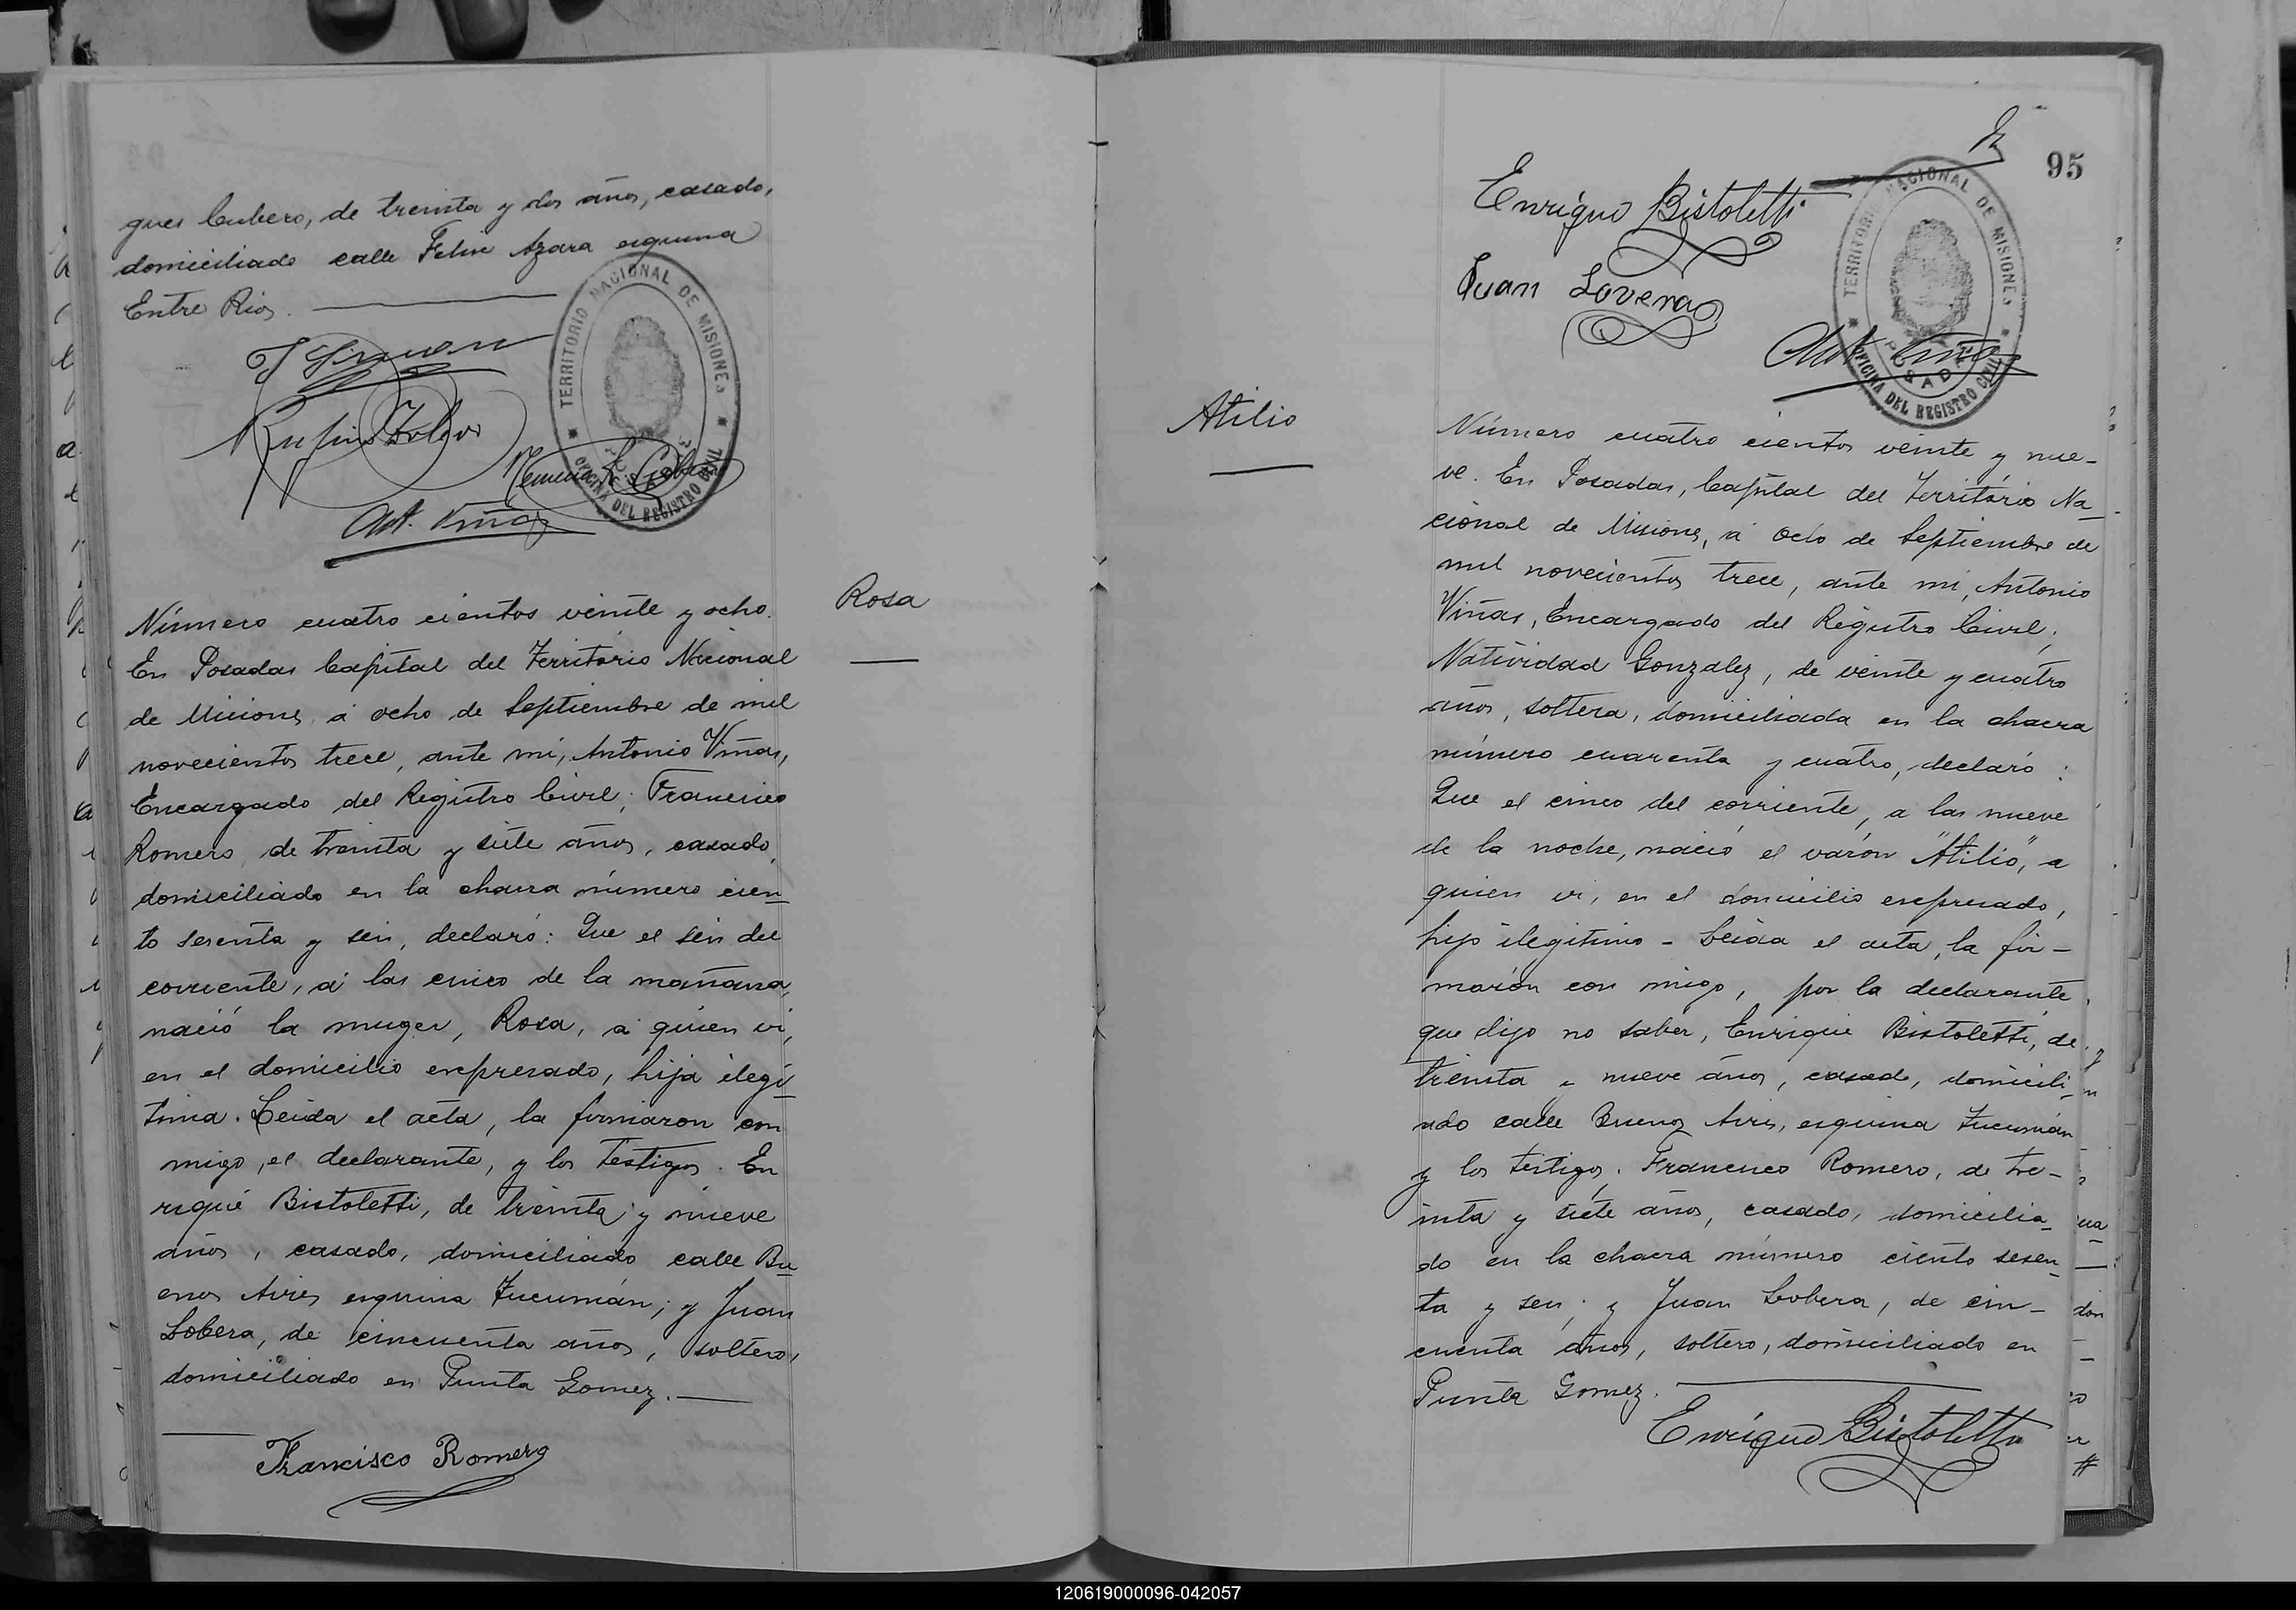 gues Cubero, de treinta y dos años, casado,
domiciliado calle Felix Azara esquina
Entre Rios.
TERRITORIO NACIONAL DE MISIONES
POSADAS
OFICINA DEL REGISTRO CIVIL
Ant. Viñas
Rosa
Número cuatro cientos veinte y ocho.
En Posadas Capital del Territorio Nacional
de Misiones, á ocho de Septiembre de mil
novecientos trece, ante mi, Antonio Viñas,
Encargado del Registro Civil; Francisco
Romero, de treinta y siete años, casado,
domiciliado en la chacra número cien
to sesenta y seis, declaró: Que el seis del
corriente, á las cinco de la mañana,
nació la muger, Rosa, a quien vi,
en el domicilio expresado, hija ilegi
tima. Leida el acta, la firmaron con
migo, el declarante, y los testigos. En
rique Bistoletti, de treinta y nueve
años, casado, domiciliado calle Bu
enos Aires esquina Tucumán; y Juan
Lobera, de cincuenta años, soltero,
domiciliado en Punta Gomez.
Francisco Romero
95
Enrique Bistoletti
Juan Lovera
TERRITORIO NACIONAL DE MISIONES
POSADAS
OFICINA DEL REGISTRO CIVIL
Ant. Viñas
Atilio
Número cuatro cientos veinte y nue-
ve. En Posadas, Capital del Territorio Na
cional de Misiones, á ocho de Septiembre de
mil novecientos trece, ante mi, Antonio
Viñas, Encargado del Registro Civil;
Natividad Gonzalez, de veinte y cuatro
años, soltera, domiciliada en la chacra
número cuarenta y cuatro, declaró:
Que el cinco del corriente, a las nueve
de la noche, nació el varón "Atilio", a
quien vi, en el domicilio expresado,
hijo ilegitimo - Leida el acta, la fir-
marón con migo, por la declarante
que dijo no saber, Enrique Bistoletti, de
treinta y nueve años, casado, domicili
ado calle Buenos Aires, esquina Tucumán
y los testigos, Francisco Romero, de tre-
inta y siete años, casado, domicilia
do en la chacra número ciento sesen
ta y seis; y Juan Lobera, de cin-
cuenta años, soltero, domiciliado en
Punta Gomez.
Enrique Bistoletti
120619000096-042057